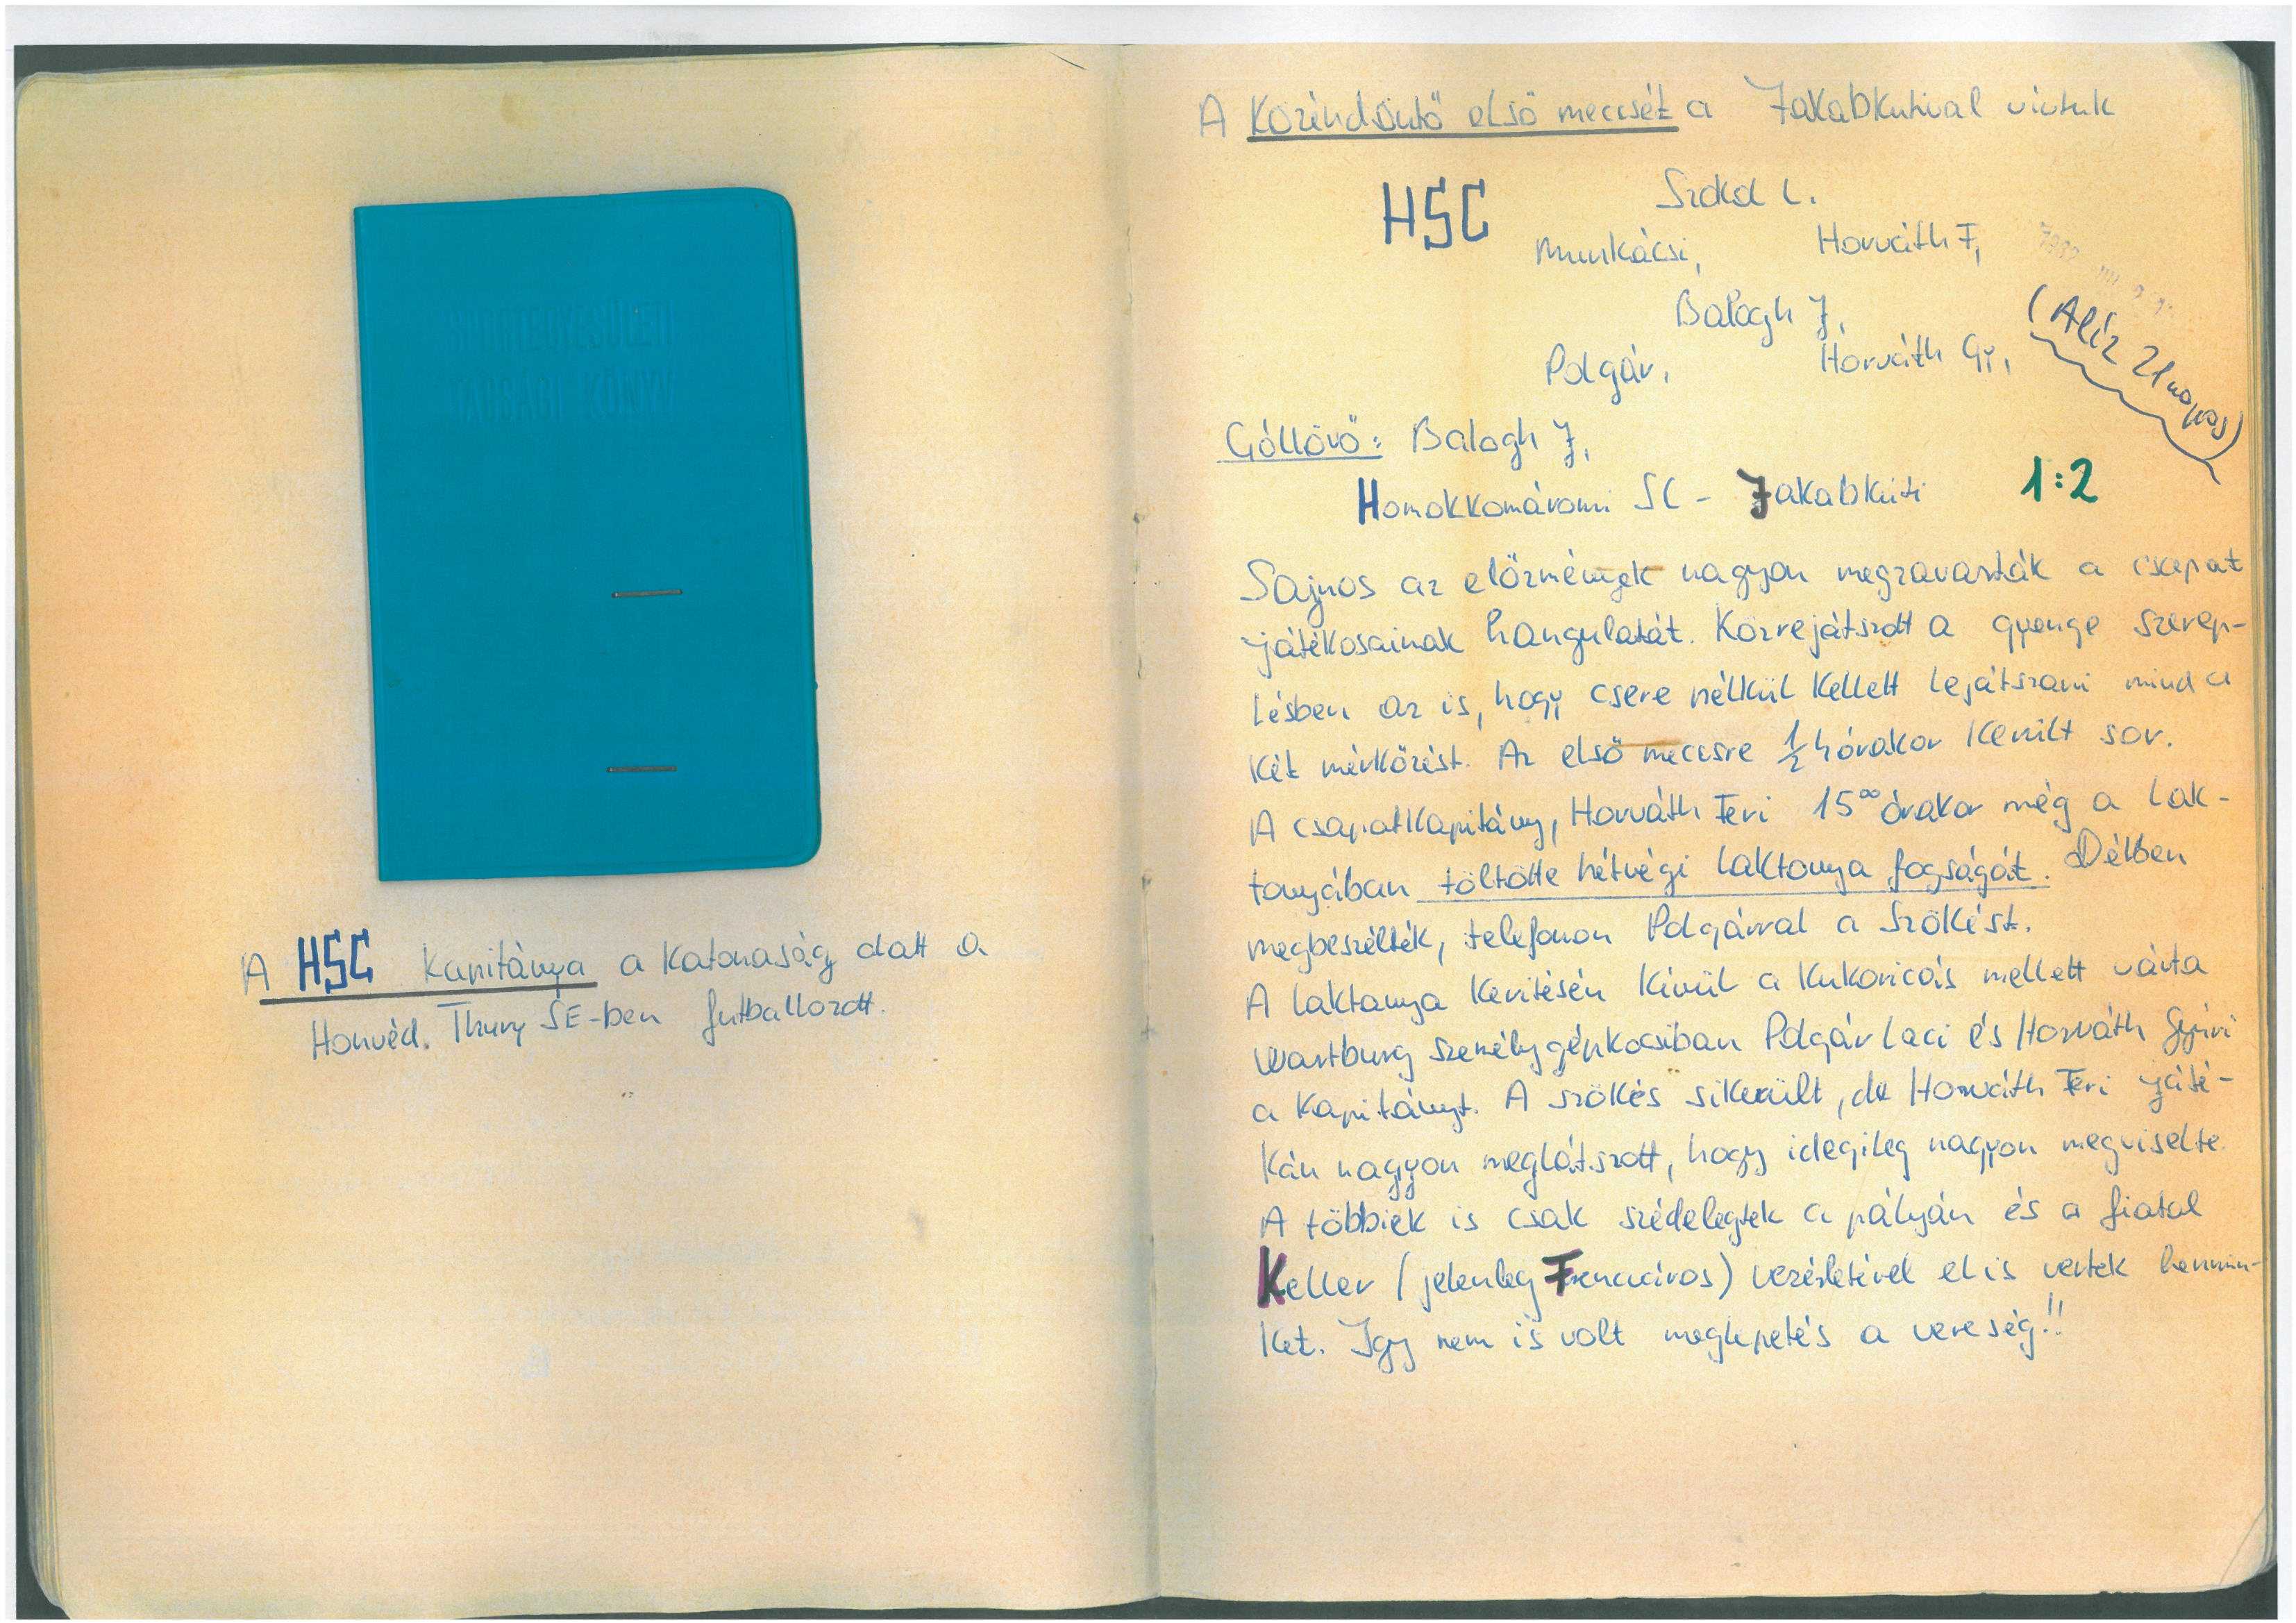 SPORTEGYESÜLETI
TAGSÁGI KÖNYV
A HSC Kapitánya a Katonaság alatt a
Honvéd. Thury SE-ben futballozott.
A Középdöntő első meccsét a Jakabkutival vívtuk
HSC
Szokol L.
Munkácsi, Horváth F,
Balogh J,
Polgár, Horváth Gy,
(Alíz 21 napos)
Góllövő: Balogh J,
Homokkomáromi SC - Jakabkúti 1:2
Sajnos az előzmények nagyon megzavarták a csapat
játékosainak hangulatát. Közrejátszott a gyenge szerep-
lésben az is, hogy csere nélkül kellett lejátszani mind a
két mérkőzést. Az első meccsre 1/2 4 órakor került sor.
A csapatkapitány, Horváth Feri 15⁰⁰ órakor még a lak-
tanyában töltötte hétvégi laktanya fogságát. Délben
megbeszélték, telefonon Polgárral a szökést.
A laktanya kerítésén kívül a kukoricás mellett várta
Wartburg személygépkocsiban Polgár Laci és Horváth Gyuri
a kapitányt. A szökés sikerült, de Horváth Feri játé-
kán nagyon meglátszott, hogy idegileg nagyon megviselte.
A többiek is csak szédelegtek a pályán és a fiatal
Keller (jelenleg Ferencváros) vezérletével el is vertek bennün-
ket. Így nem is volt meglepetés a vereség!!